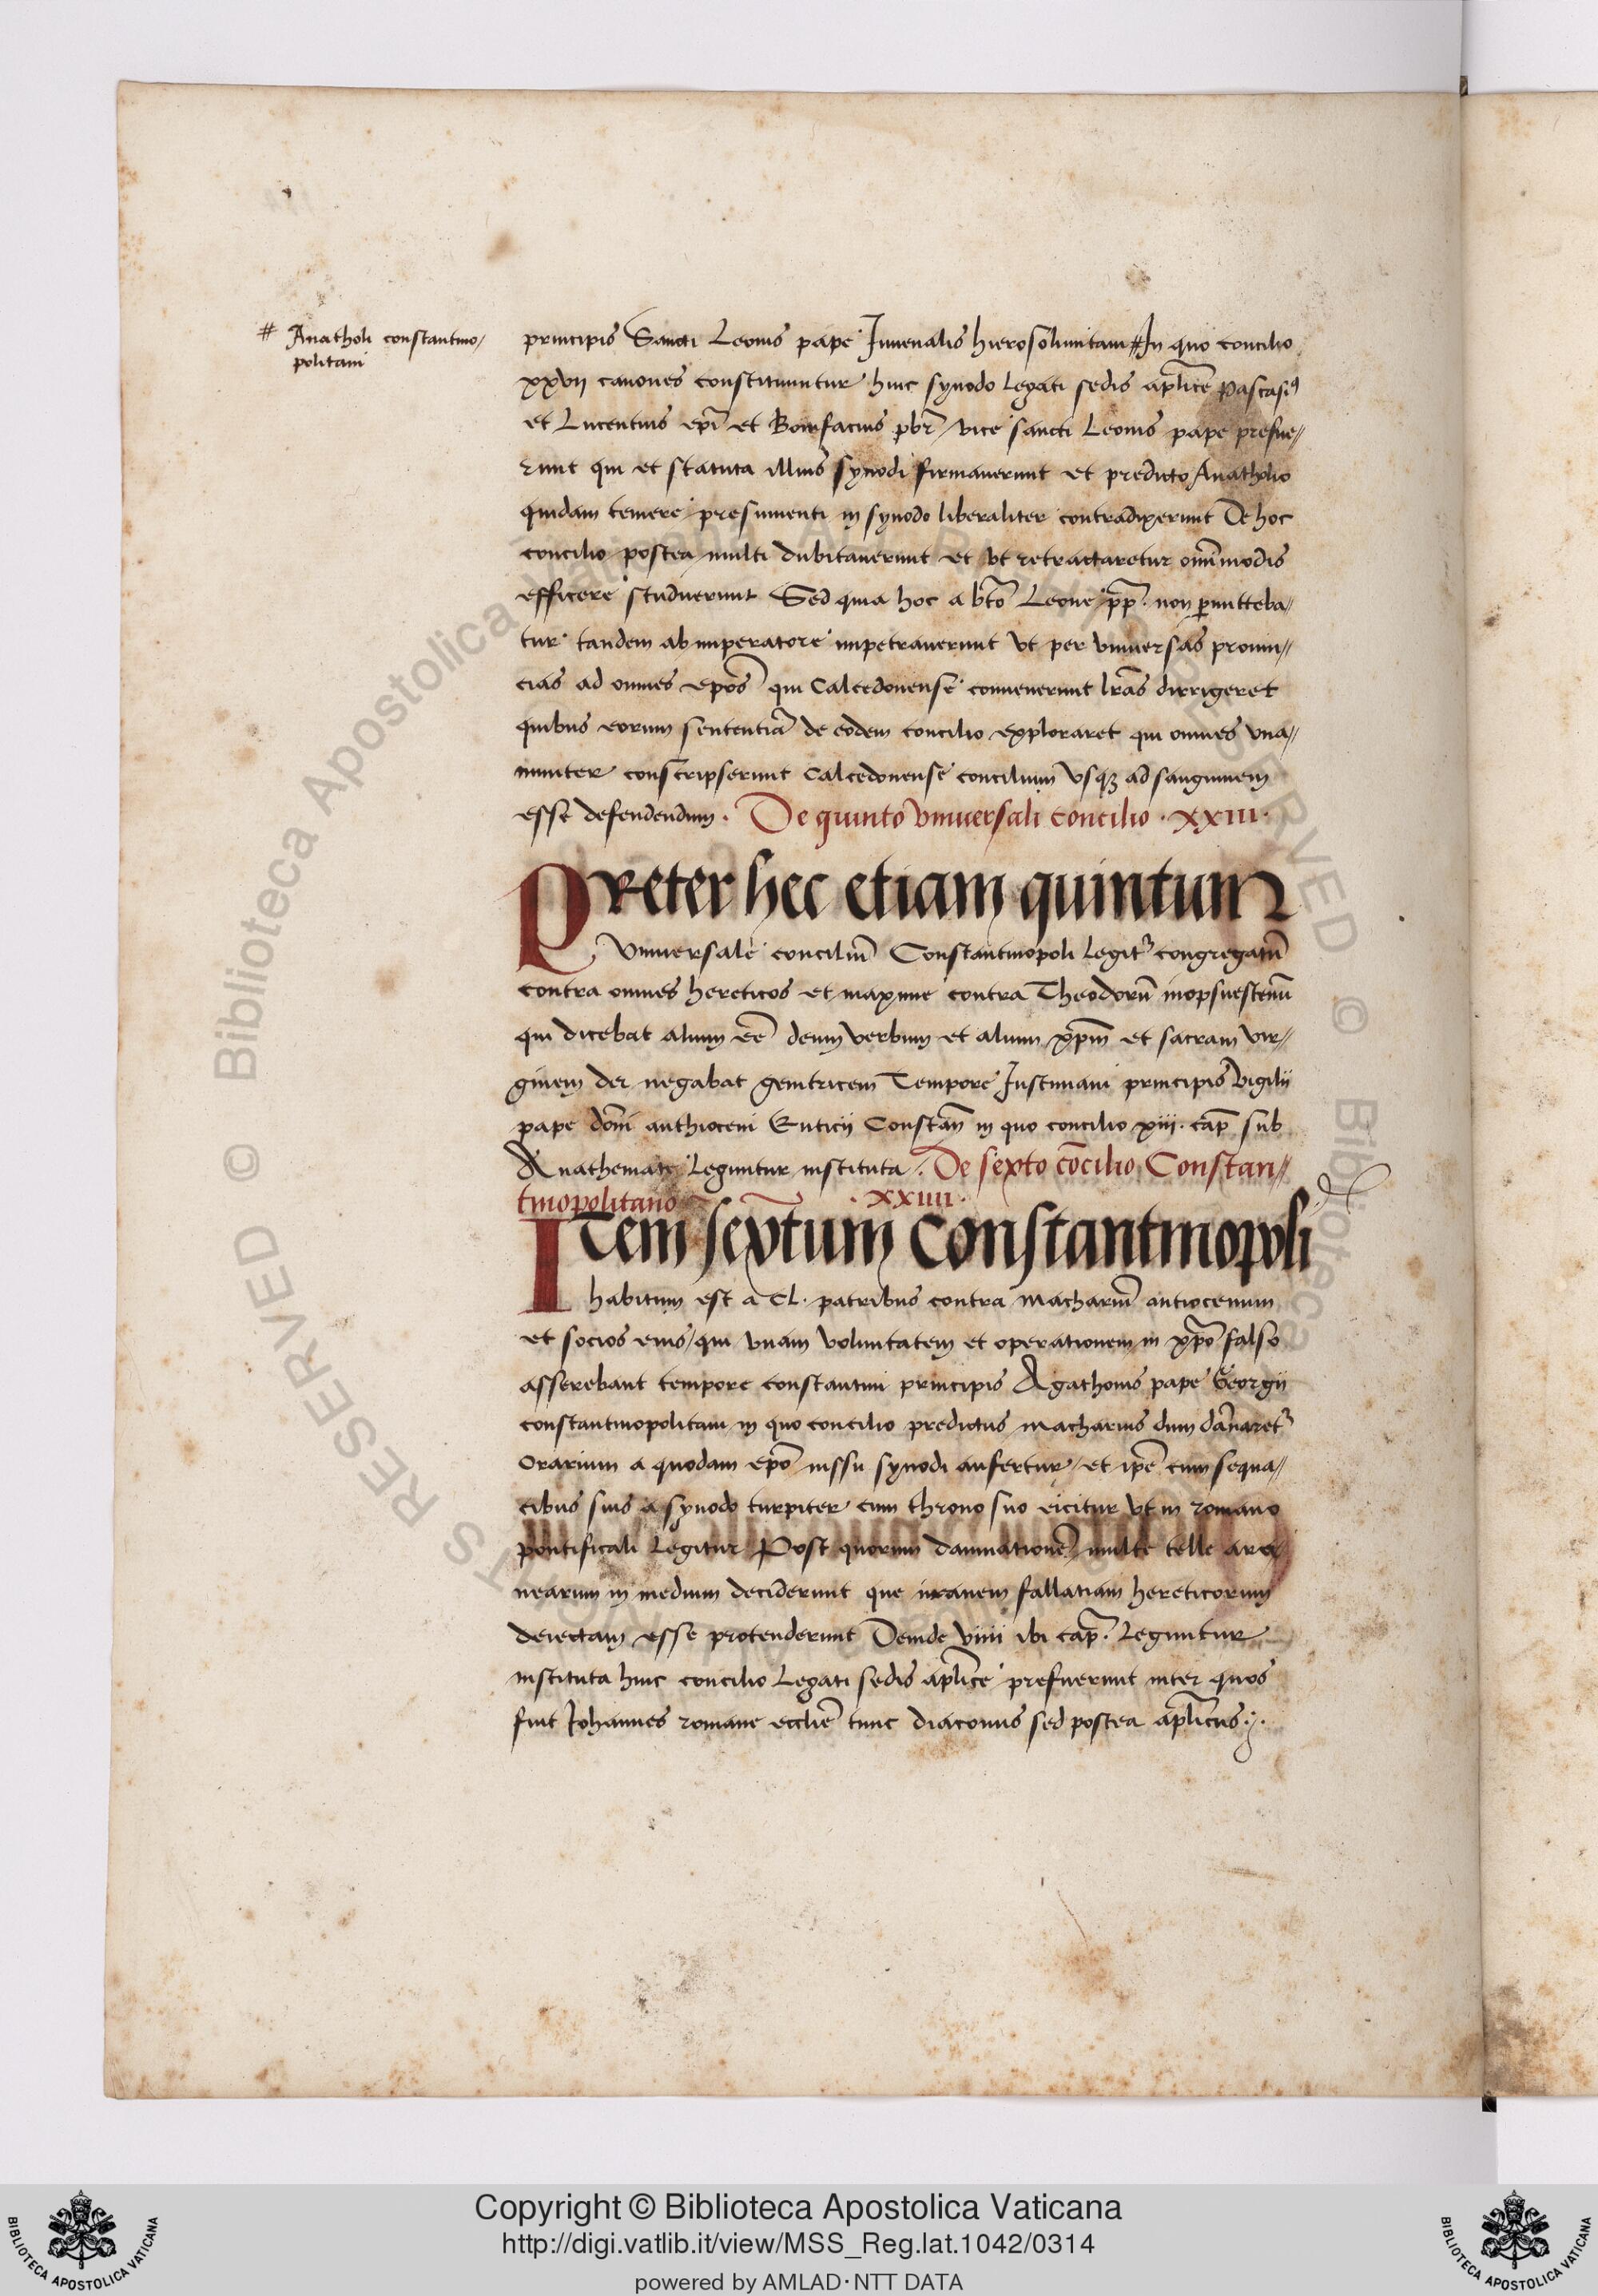 # Anatholi constantino/
politani
principis Sancti Leonis pape Iuuenalis hierosolimitani # In quo concilio
xxvij canones constituuntur huic synodo legati sedis aplice pascasi9
et Lucentius epi et Bonifacius pbr vice sancti Leonis pape prefue//
runt qui et statuta illius synodi firmauerunt et predicto Anatholio
quidam temere presumenti in synodo liberaliter contradixerunt De hoc
concilio postea multi dubitauerunt et vt retractaretur omnimodis
efficere studuerunt Sed quia hoc a bto Leone pp. non permitteba//
tur tandem ab imperatore impetrauerunt vt per vniuersas prouin//
cias ad omnes epos qui Calcedonense conuenerunt lras dirrigeret
quibus eorum sententia de eodem concilio exploraret qui omnes vna//
nimiter conscripserunt Calcedonense concilium vsqz ad sanguinem
esse defendendum. De quinto vniuersali concilio . xxiii.
Preter hec etiam quintum
Vniuersale conciliu Constantinopoli legitur congregatu
contra omnes hereticos et maxime contra Theodoru mopsuestenu
qui dicebat alium ee deum verbum et alium xpm et sacram vir//
ginem dei negabat genitricem Tempore Iustiniani principis Vigilii
pape doni anthioceni Euticij Constan in quo concilio xiij. cap sub
Anathemate leguntur instituta. De sexto cocilio Constan//
tinopolitano . xxiiii.
Item sextum Constantinopoli
habitum est a CL. patribus contra Macharium antiocenum
et socios eius/qui vnam voluntatem et operationem in xpo falso
asserebant tempore constantini principis Agathonis pape Georgij
constantinopolitani in quo concilio predictus Macharius dum danaretur
Orarium a quodam epo iussu synodi aufertur/et ipe cum sequa//
cibus suis a synodo turpiter cum throno suo eicitur vt in romano
pontificali legitur Post quorum damnatione multe telle ara
nearum in medium deciderunt que inanem fallatiam hereticorum
deiectam esse protenderunt Deinde viiij ibi cap. leguntur
instituta huic concilio Legati sedis aplice prefuerunt inter quos
fuit Iohannes romane ecclie tunc diaconus sed postea aplicus.
Copyright © Biblioteca Apostolica Vaticana
http://digi.vatlib.it/view/MSS_Reg.lat.1042/0314
powered by AMLAD·NTT DATA
BIBLIOTECA APOSTOLICA VATICANA
BIBLIOTECA APOSTOLICA VATICANA